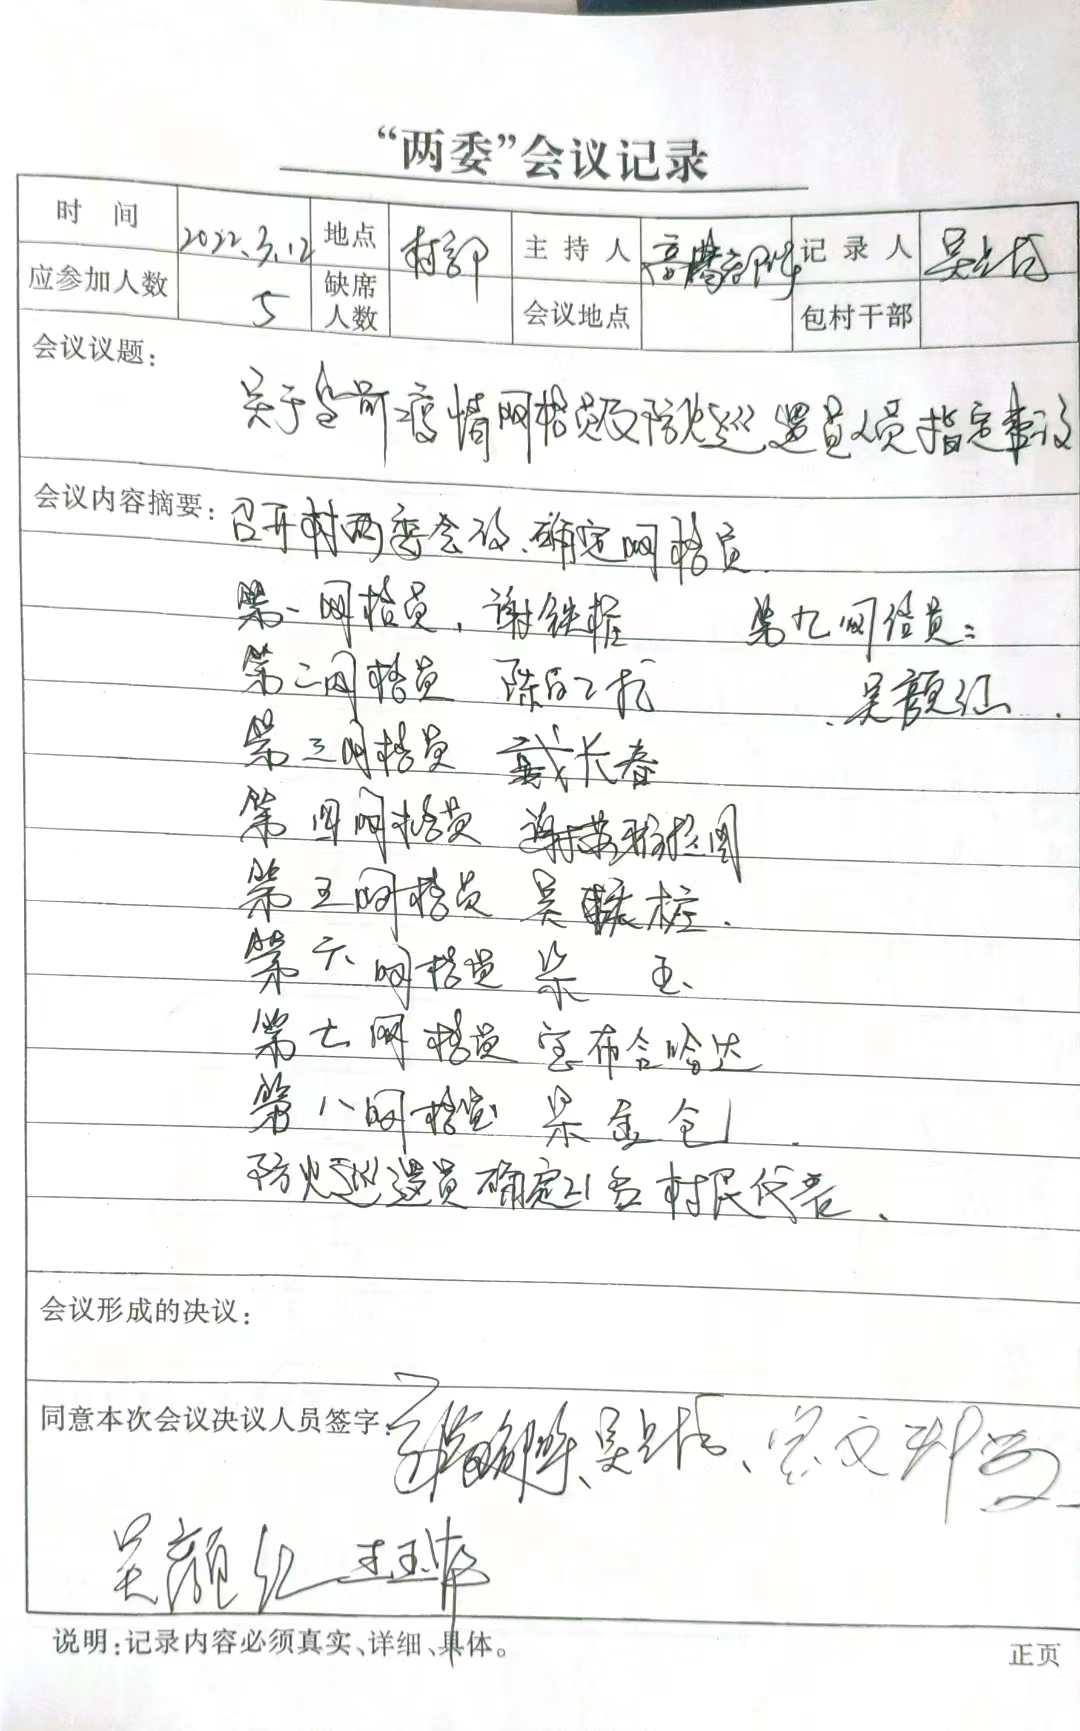 “两委”会议记录
时间 2022.3.12 地点 村部 主持人 记录人 吴
应参加人数 5 缺席人数 会议地点 包村干部
会议议题:
关于当前疫情网格员及防火巡逻员人员指定事议
会议内容摘要: 召开村两委会议、确定网格员.
第一网格员, 谢铁桩 第九网格员:
第二网格员 陈 吴颜红.
第三网格员 戴长春
第四网格员 谢
第五网格员 吴 桩.
第六网格员 梁 玉
第七网格员 宝布合哈达
第八网格员 梁金仓.
防火巡逻员确定21名村民代表、
会议形成的决议:
同意本次会议决议人员签字: 吴
吴颜红 王玉
说明:记录内容必须真实、详细、具体。
正页